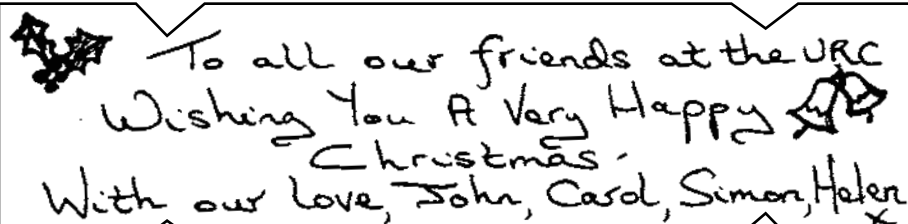 To all our friends at the URC
Wishing You A Very Happy
Christmas.
With our Love, John, Carol, Simon, Helen
x